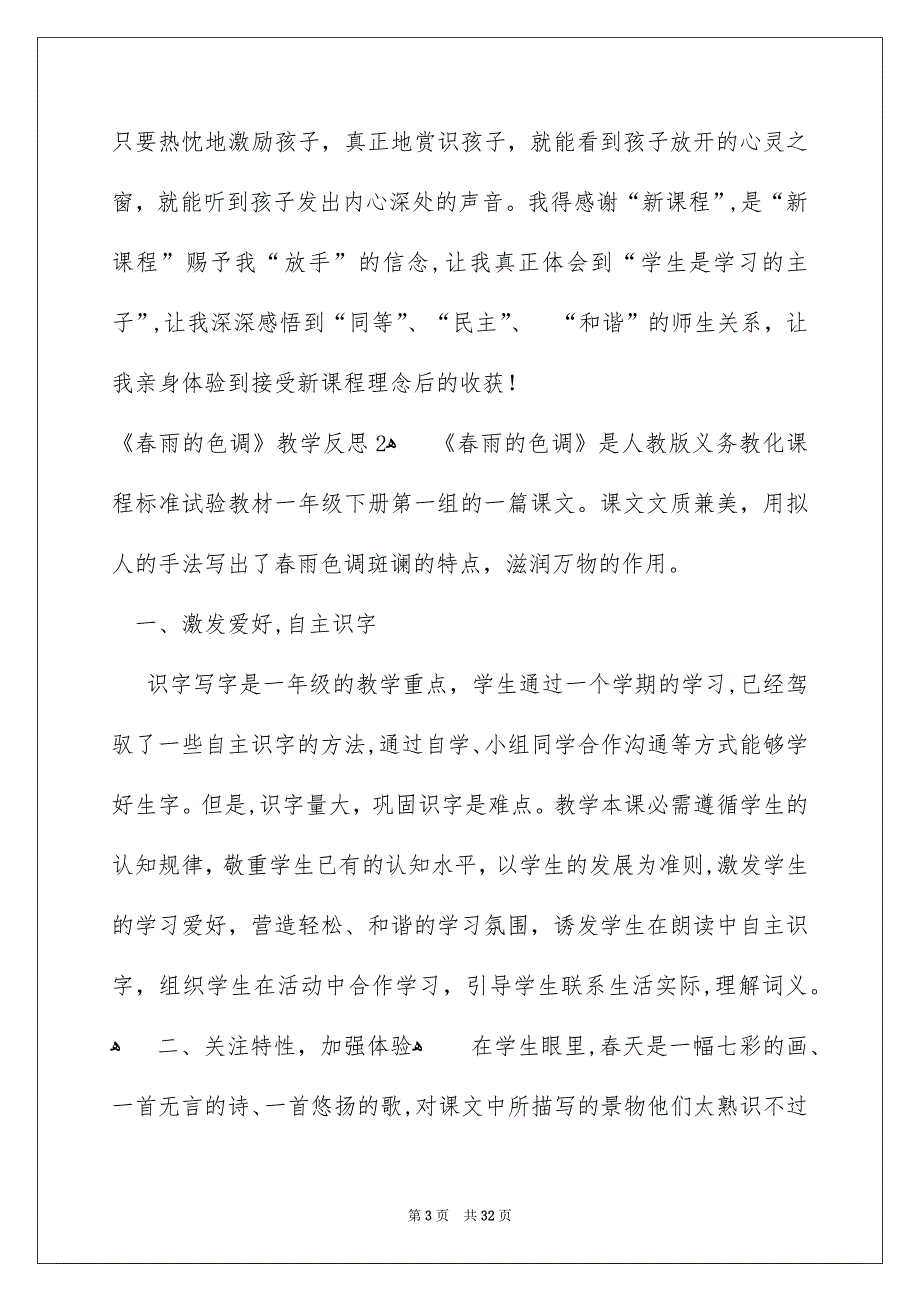 只要热忱地激励孩子，真正地赏识孩子，就能看到孩子放开的心灵之
窗，就能听到孩子发出内心深处的声音。我得感谢“新课程”,是“新
课程”赐予我“放手”的信念,让我真正体会到“学生是学习的主
子”,让我深深感悟到“同等”、“民主”、 “和谐”的师生关系，让
我亲身体验到接受新课程理念后的收获！
《春雨的色调》教学反思2ﻫ 《春雨的色调》是人教版义务教化课
程标准试验教材一年级下册第一组的一篇课文。课文文质兼美，用拟
人的手法写出了春雨色调斑谰的特点，滋润万物的作用。
一、激发爱好,自主识字
识字写字是一年级的教学重点，学生通过一个学期的学习,已经驾
驭了一些自主识字的方法,通过自学、小组同学合作沟通等方式能够学
好生字。但是,识字量大，巩固识字是难点。教学本课必需遵循学生的
认知规律，敬重学生已有的认知水平，以学生的发展为准则,激发学生
的学习爱好，营造轻松、和谐的学习氛围，诱发学生在朗读中自主识
字，组织学生在活动中合作学习，引导学生联系生活实际,理解词义。
ﻫ 二、关注特性，加强体验ﻫ 在学生眼里,春天是一幅七彩的画、
一首无言的诗、一首悠扬的歌,对课文中所描写的景物他们太熟识不过
第 3 页 共 32 页